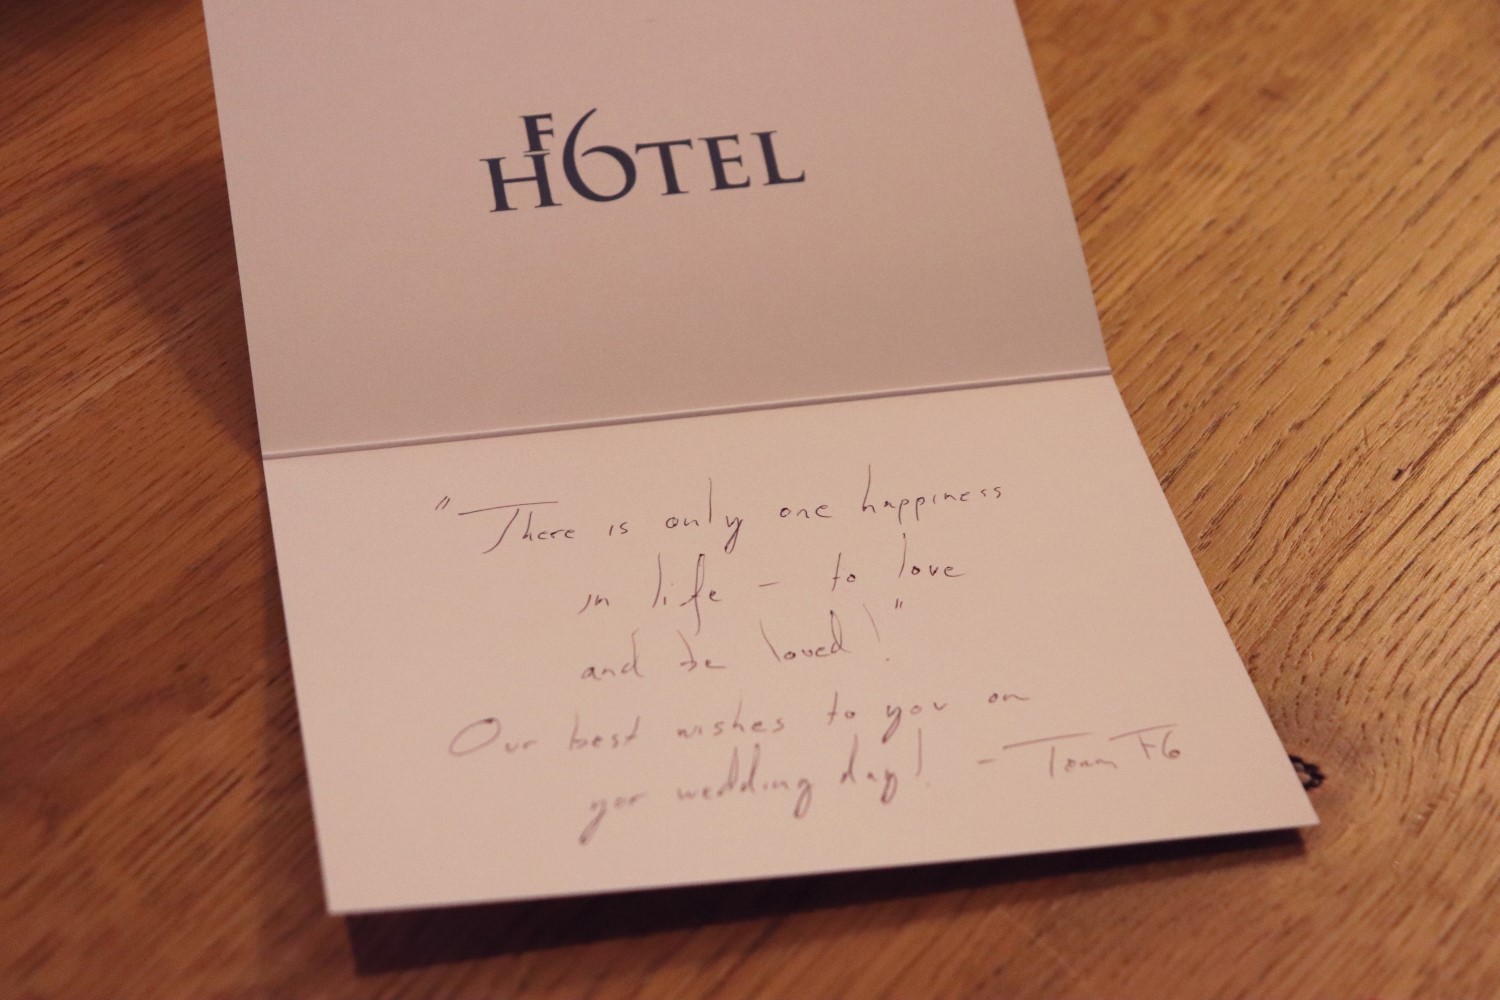 F
H6TEL
"There is only one happiness
in life – to love
and be loved!"
Our best wishes to you on
yor wedding day! – Team F6